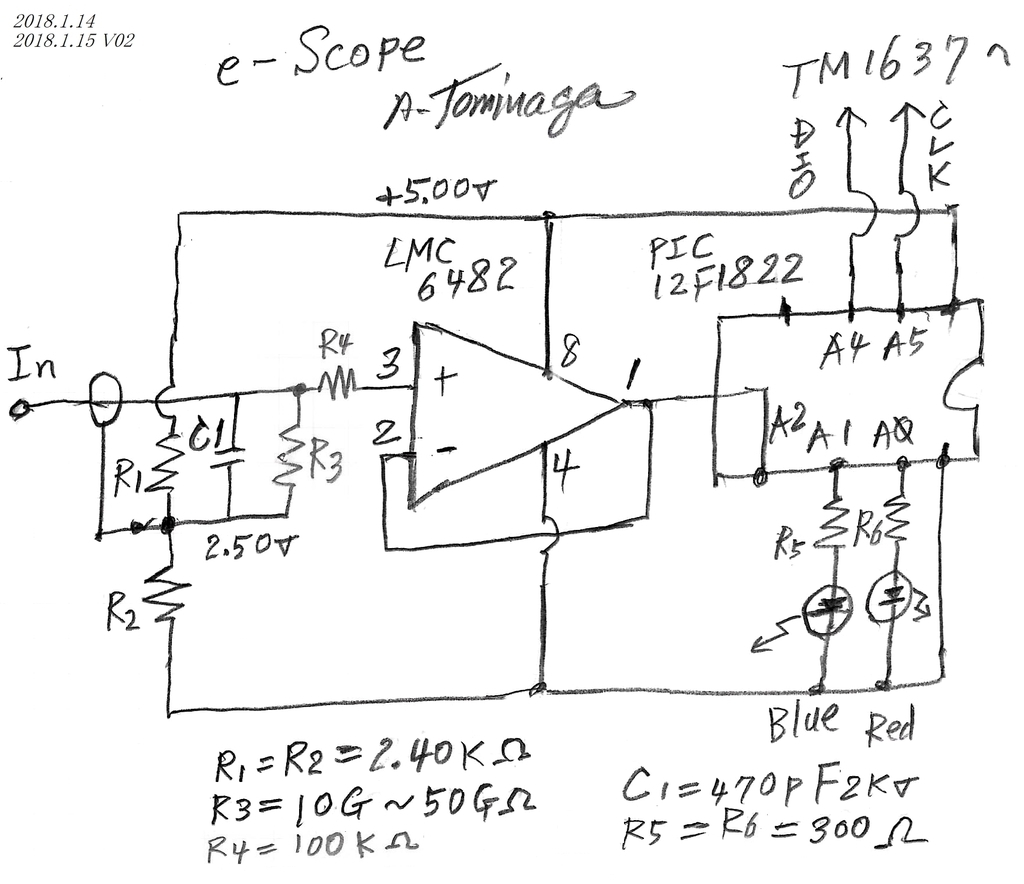 2018.1.14
2018.1.15 V02
e-Scope
A-Tominaga
TM1637へ
DIO
CLK
+5.00V
LMC
6482
PIC
12F1822
In
R4
3
+
8
1
A4 A5
2
-
C1
R1
R3
4
A2 A1 A0
2.50V
R5
R6
R2
Blue Red
R1=R2=2.40KΩ
R3=10G~50GΩ
R4=100KΩ
C1=470pF2KV
R5=R6=300Ω